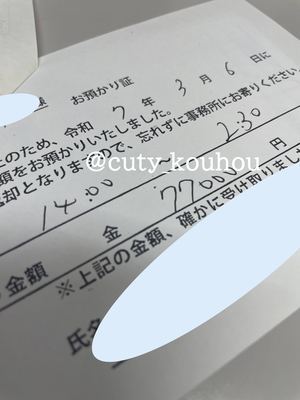 お預かり証
のため、令和 7 年 3 月 6 日に
をお預かりいたしました。
却となりますので、忘れずに事務所にお寄りください
@cuty_kouhou
14:00 ~ 2:30
金 77000 円
の金額
※上記の金額、確かに受け取りました
氏名